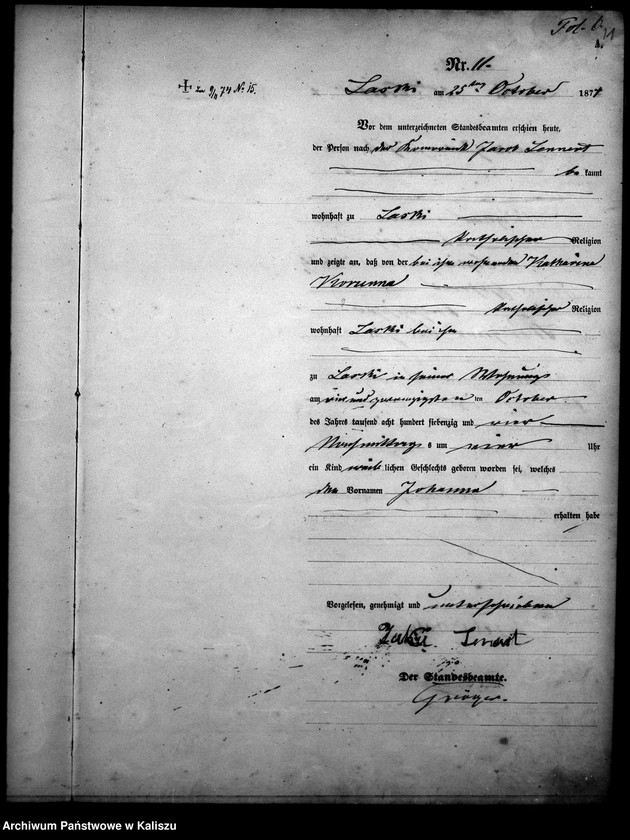 Fol. 6.
Nr. 11.
Laski am 25ten October 1874
Vor dem unterzeichneten Standesbeamten erschien heute,
der Person nach der Jacob Lennert
be kannt
wohnhaft zu Laski
katholischer Religion
und zeigte an, daß von der bei ihm wohnenden Katharina
Korunna
katholischer Religion
wohnhaft Laski bei ihm
zu Laski in seiner Wohnung
am vier und zwanzigsten ten October
des Jahrs tausend acht hundert siebenzig und vier
Nachmittags um vier Uhr
ein Kind weib lichen Geschlechts geboren worden sei, welches
den Vornamen Johanna
erhalten habe
Vorgelesen, genehmigt und unterschrieben
Lennert
Der Standesbeamte.
Gröger.
Archiwum Państwowe w Kaliszu